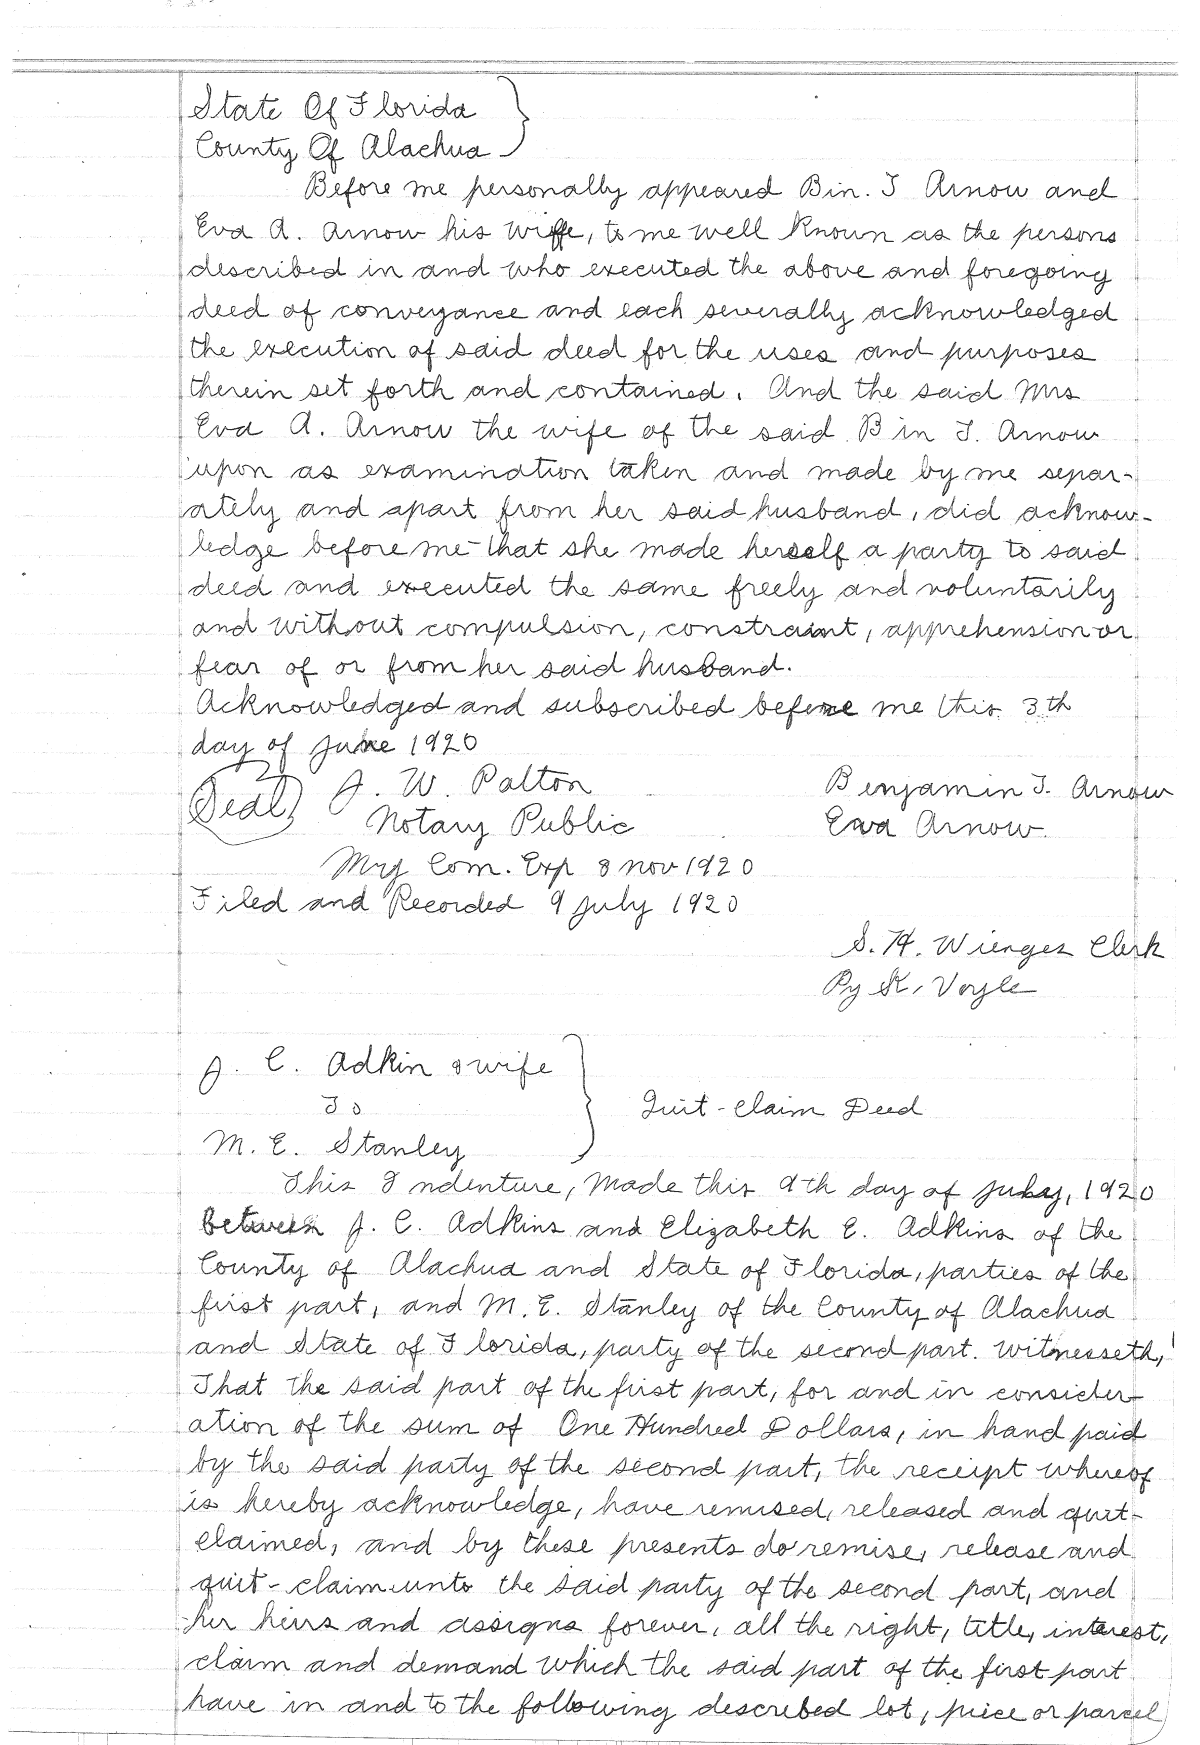 State Of Florida
County Of Alachua
Before me personally appeared Bin. T Arnow and
Eva A. Arnow his wife, to me well known as the persons
described in and who executed the above and foregoing
deed of conveyance and each severally acknowledged
the execution of said deed for the uses and purposes
therein set forth and contained. And the said Mrs
Eva A. Arnow the wife of the said Bin T. Arnow
upon as examination taken and made by me separ-
ately and apart from her said husband, did acknow-
ledge before me that she made herself a party to said
deed and executed the same freely and voluntarily
and without compulsion, constraint, apprehension or
fear of or from her said husband.
Acknowledged and subscribed before me this 3th
day of June 1920
Seal J. W. Palton Benjamin T. Arnow
Notary Public Eva Arnow
My Com. Exp 8 Nov 1920
Filed and Recorded 9 July 1920
S. H. Wienges Clerk
By K. Voyle
J. C. Adkin & wife
To Quit-Claim Deed
M. E. Stanley
This Indenture, Made this 9th day of July, 1920
between J. C. Adkins and Elizabeth E. Adkins of the
County of Alachua and State of Florida, parties of the
first part, and M. E. Stanley of the County of Alachua
and State of Florida, party of the second part. Witnesseth,
That the said part of the first part, for and in consider-
ation of the sum of One Hundred Dollars, in hand paid
by the said party of the second part, the receipt whereof
is hereby acknowledge, have remised, released and quit-
claimed, and by these presents do remise, release and
quit-claim unto the said party of the second part, and
her heirs and assigns forever, all the right, title, interest,
claim and demand which the said part of the first part
have in and to the following described lot, piece or parcel